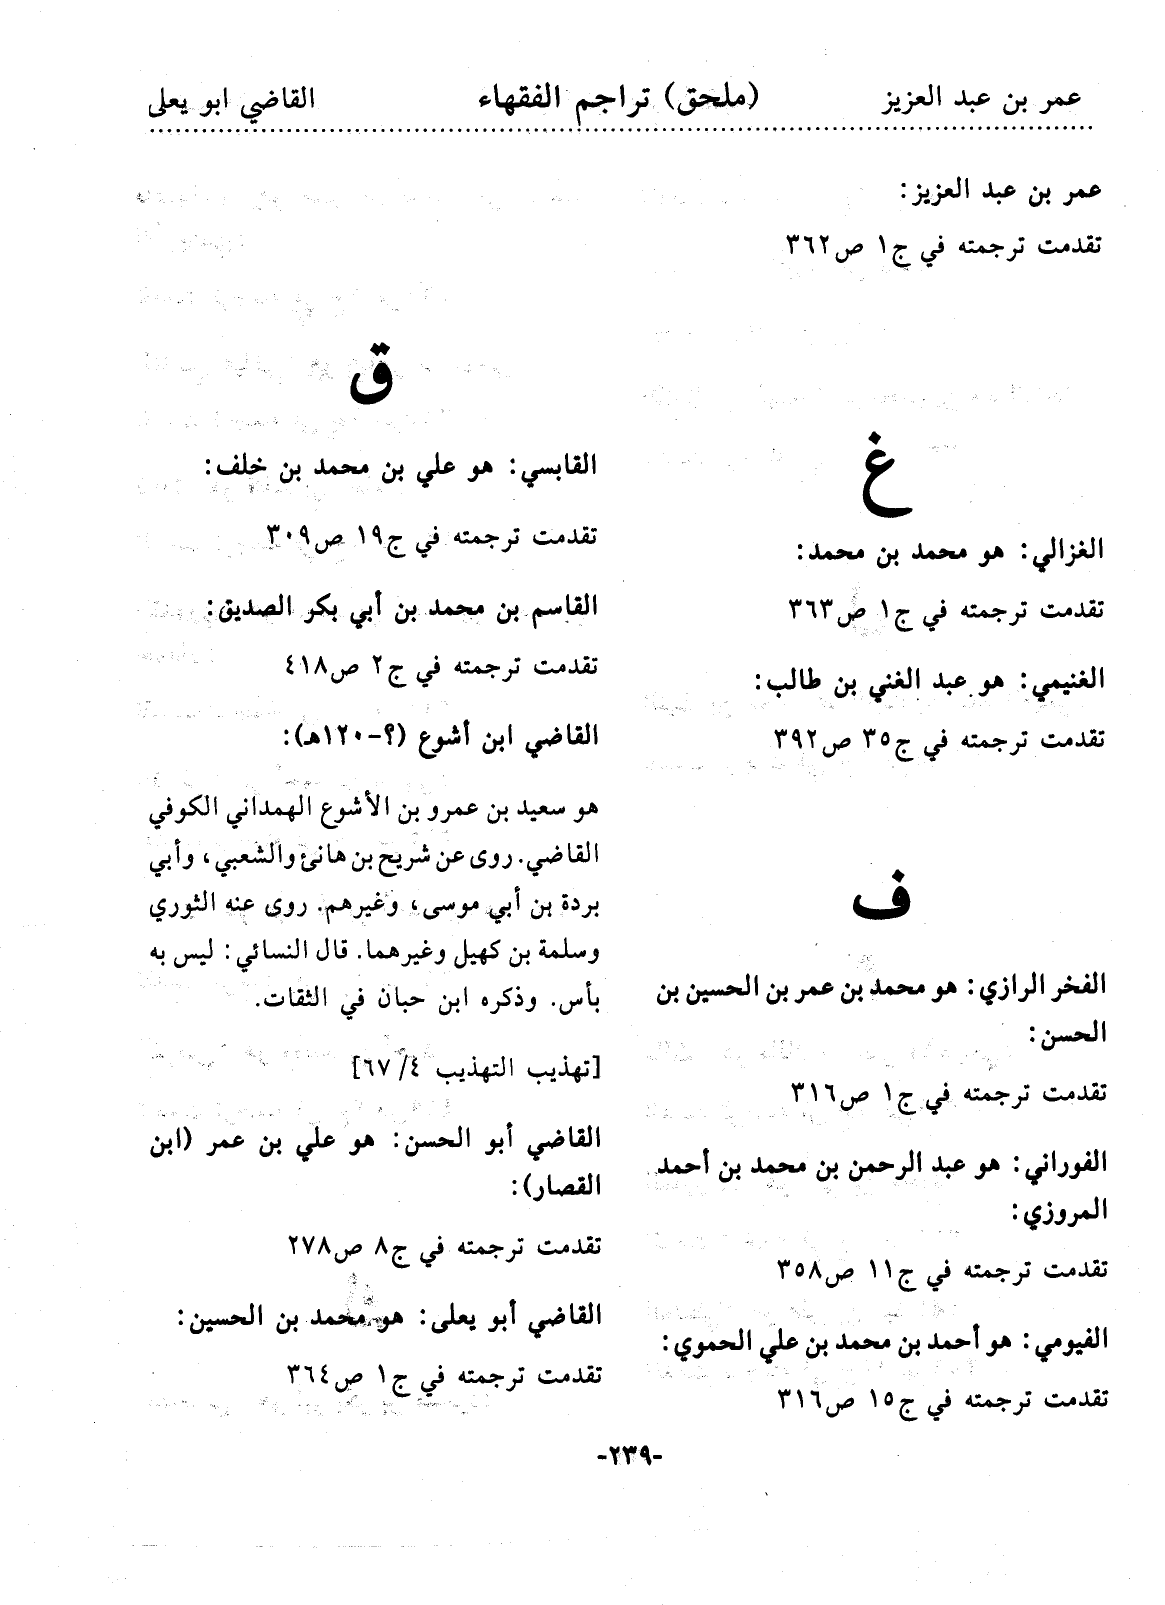 عمر بن عبد العزيز (ملحق) تراجم الفقهاء القاضي ابو يعلى
عمر بن عبد العزيز:
تقدمت ترجمته في ج١ ص٣٦٢
غ
الغزالي: هو محمد بن محمد:
تقدمت ترجمته في ج١ ص٣٦٣
الغنيمي: هو عبد الغني بن طالب:
تقدمت ترجمته في ج٣٥ ص٣٩٢
ف
الفخر الرازي: هو محمد بن عمر بن الحسين بن
الحسن:
تقدمت ترجمته في ج١ ص٣١٦
الفوراني: هو عبد الرحمن بن محمد بن أحمد
المروزي:
تقدمت ترجمته في ج١١ ص٣٥٨
الفيومي: هو أحمد بن محمد بن علي الحموي:
تقدمت ترجمته في ج١٥ ص٣١٦
ق
القابسي: هو علي بن محمد بن خلف:
تقدمت ترجمته في ج١٩ ص٣٠٩
القاسم بن محمد بن أبي بكر الصديق:
تقدمت ترجمته في ج٢ ص٤١٨
القاضي ابن أشوع (؟-١٢٠هـ):
هو سعيد بن عمرو بن الأشوع الهمداني الكوفي
القاضي. روى عن شريح بن هانئ والشعبي، وأبي
بردة بن أبي موسى، وغيرهم. روى عنه الثوري
وسلمة بن كهيل وغيرهما. قال النسائي: ليس به
بأس. وذكره ابن حبان في الثقات.
[تهذيب التهذيب ٤/ ٦٧]
القاضي أبو الحسن: هو علي بن عمر (ابن
القصار):
تقدمت ترجمته في ج٨ ص٢٧٨
القاضي أبو يعلى: هو محمد بن الحسين:
تقدمت ترجمته في ج١ ص٣٦٤
-٢٣٩-